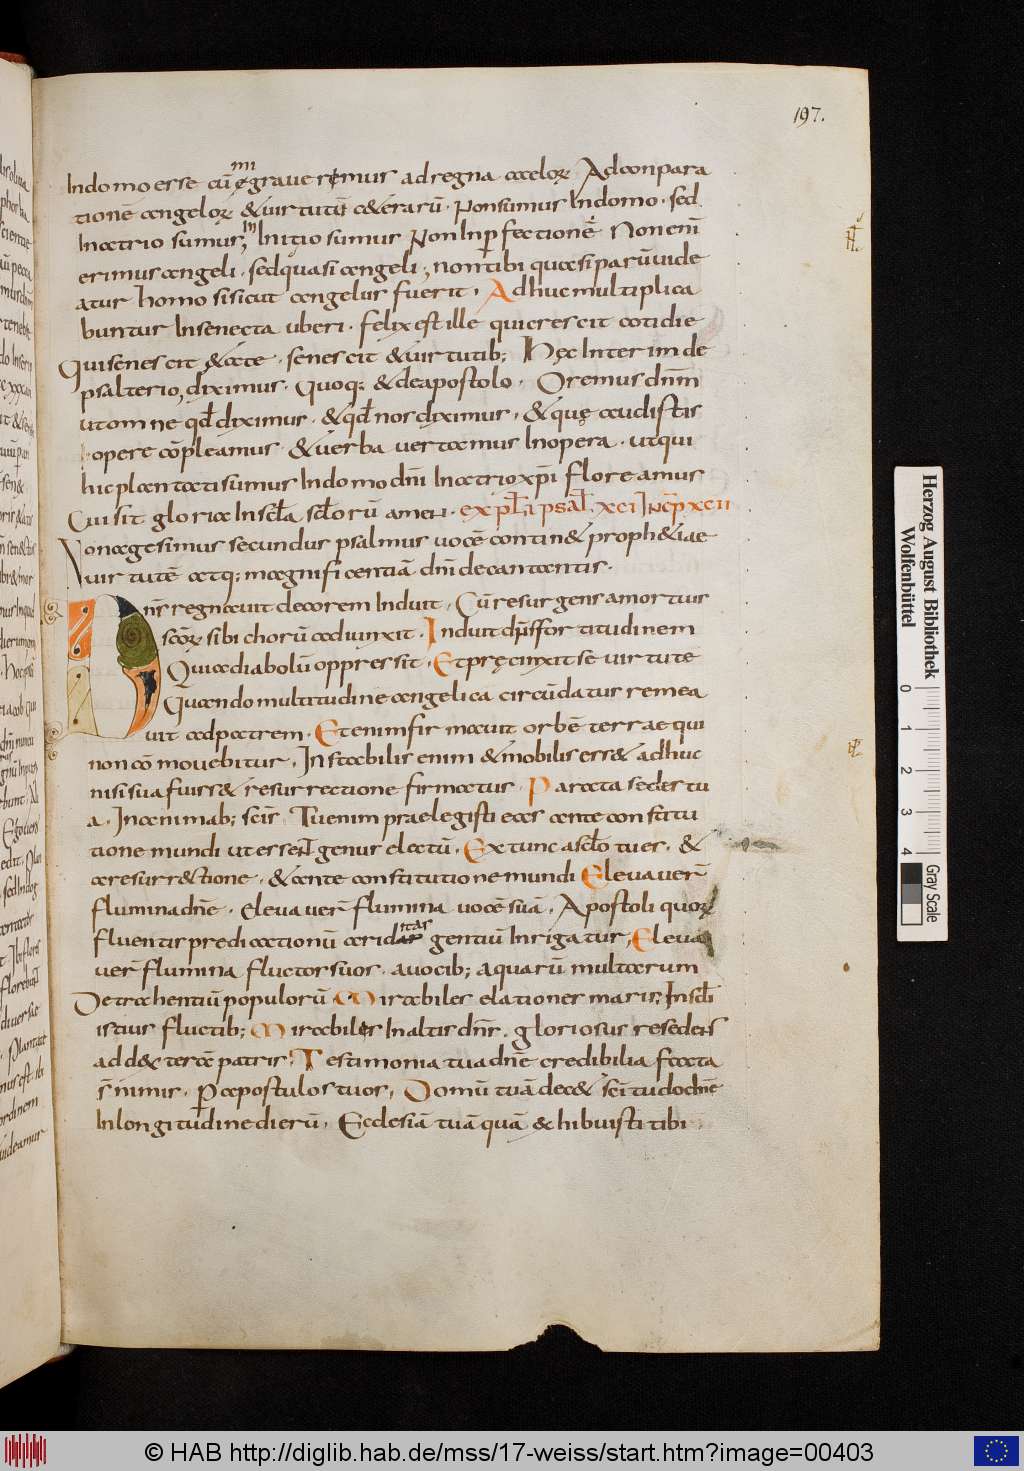 197.
Indomo esse cū egraveremus ad regna cœlorꝝ Adconpara
mi
tionē angelorꝝ & virtutū c&erarū. Non sumus Indomo. sed
Inatrio sumus, Initio sumus Non Inꝑfectionē Non enī
In
erimus angeli. sed quasi angeli; non tibi quasi parū vide
atur homo si sicut angelus fuerit. Adhuc multiplica
buntur Insenecta uberi. felix est ille qui crescit cotidie
Qui senescit &ate. senescit & virtutib; Hęc Interim de
psalterio, diximus. Quoq; & de apostolo. Oremus dn̄m
ut omne qd̄ diximus. & qd̄ nos diximus. & quę audistis
opere cōpleamus. & verba vertamus Inopera. ut qui
hic plantati sumus Indomo dn̄i Inatrio xp̄i floreamus
Cui sit gloria Inscl̄a scl̄orū amen. expl̄ i psal̄. xci Incp̄ xcii
Nonagesimus secundus psalmus vocē contin& proph&iae
virtutē atq; magnificentiā dn̄i decantantis.
Dn̄s regnavit decorem Induit. Cū resurgens a mortuis
scōrꝝ sibi chorū adiunxit. Induit dn̄s fortitudinem
Qui a diabolū oppressit. Et pręcinxit se virtute
Quando multitudine angelica circūdatus remea
vit ad patrem. Etenim firmavit orbē terrae qui
non cōmovebitur. Instabilis enim & mobilis ess& adhuc
nisi sua fuiss& resurrectione firmatus. Parata sedes tu
a. Inanimab; scīs. Tu enim praelegisti eos ante constitu
tione mundi ut essen̄t genus electū. Ex tunc a scl̄o tu es. &
a resurr&tione. & ante constitutione mundi Elevaver̄
flumina dn̄e. Elevaver̄ flumina vocē suā. Apostoli quorꝝ
fluentis predicationū aridar gentiū Inrigatur, Eleva
itas
ver̄ flumina fluctos suos. a vocib; aquarū multarum
De trachentiū populorū Mirabiles elationes maris, Inscl̄i
istius fluctib; Mirabiles Inaltis dn̄s. gloriosus resedens
ad dex&terā patris! Testimonia tua dn̄e credibilia facta
s̄ nimis. Per apostulos tuos, Domū tuā dec& scītudo dn̄e
Inlongitudine dierū, Ecclesiā tuā quā adhibuisti tibi
Herzog August Bibliothek
Wolfenbüttel
0 1 2 3 4
Gray Scale
© HAB http://diglib.hab.de/mss/17-weiss/start.htm?image=00403